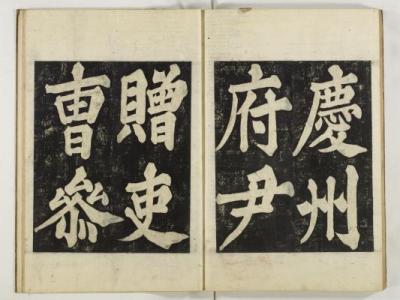 慶州
府尹
贈吏
曺參